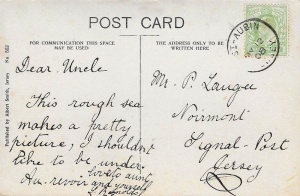 POST CARD
FOR COMMUNICATION THIS SPACE
MAY BE USED.
THE ADDRESS ONLY TO BE
WRITTEN HERE
ST. AUBIN
Published by Albert Smith, Jersey. No.
Dear Uncle
This rough sea
makes a pretty
picture, I shouldnt
like to be under.
love to aunt
Au. revoir and yourself
Mr. P. Laugee
Noirmont
Signal-Post
Jersey